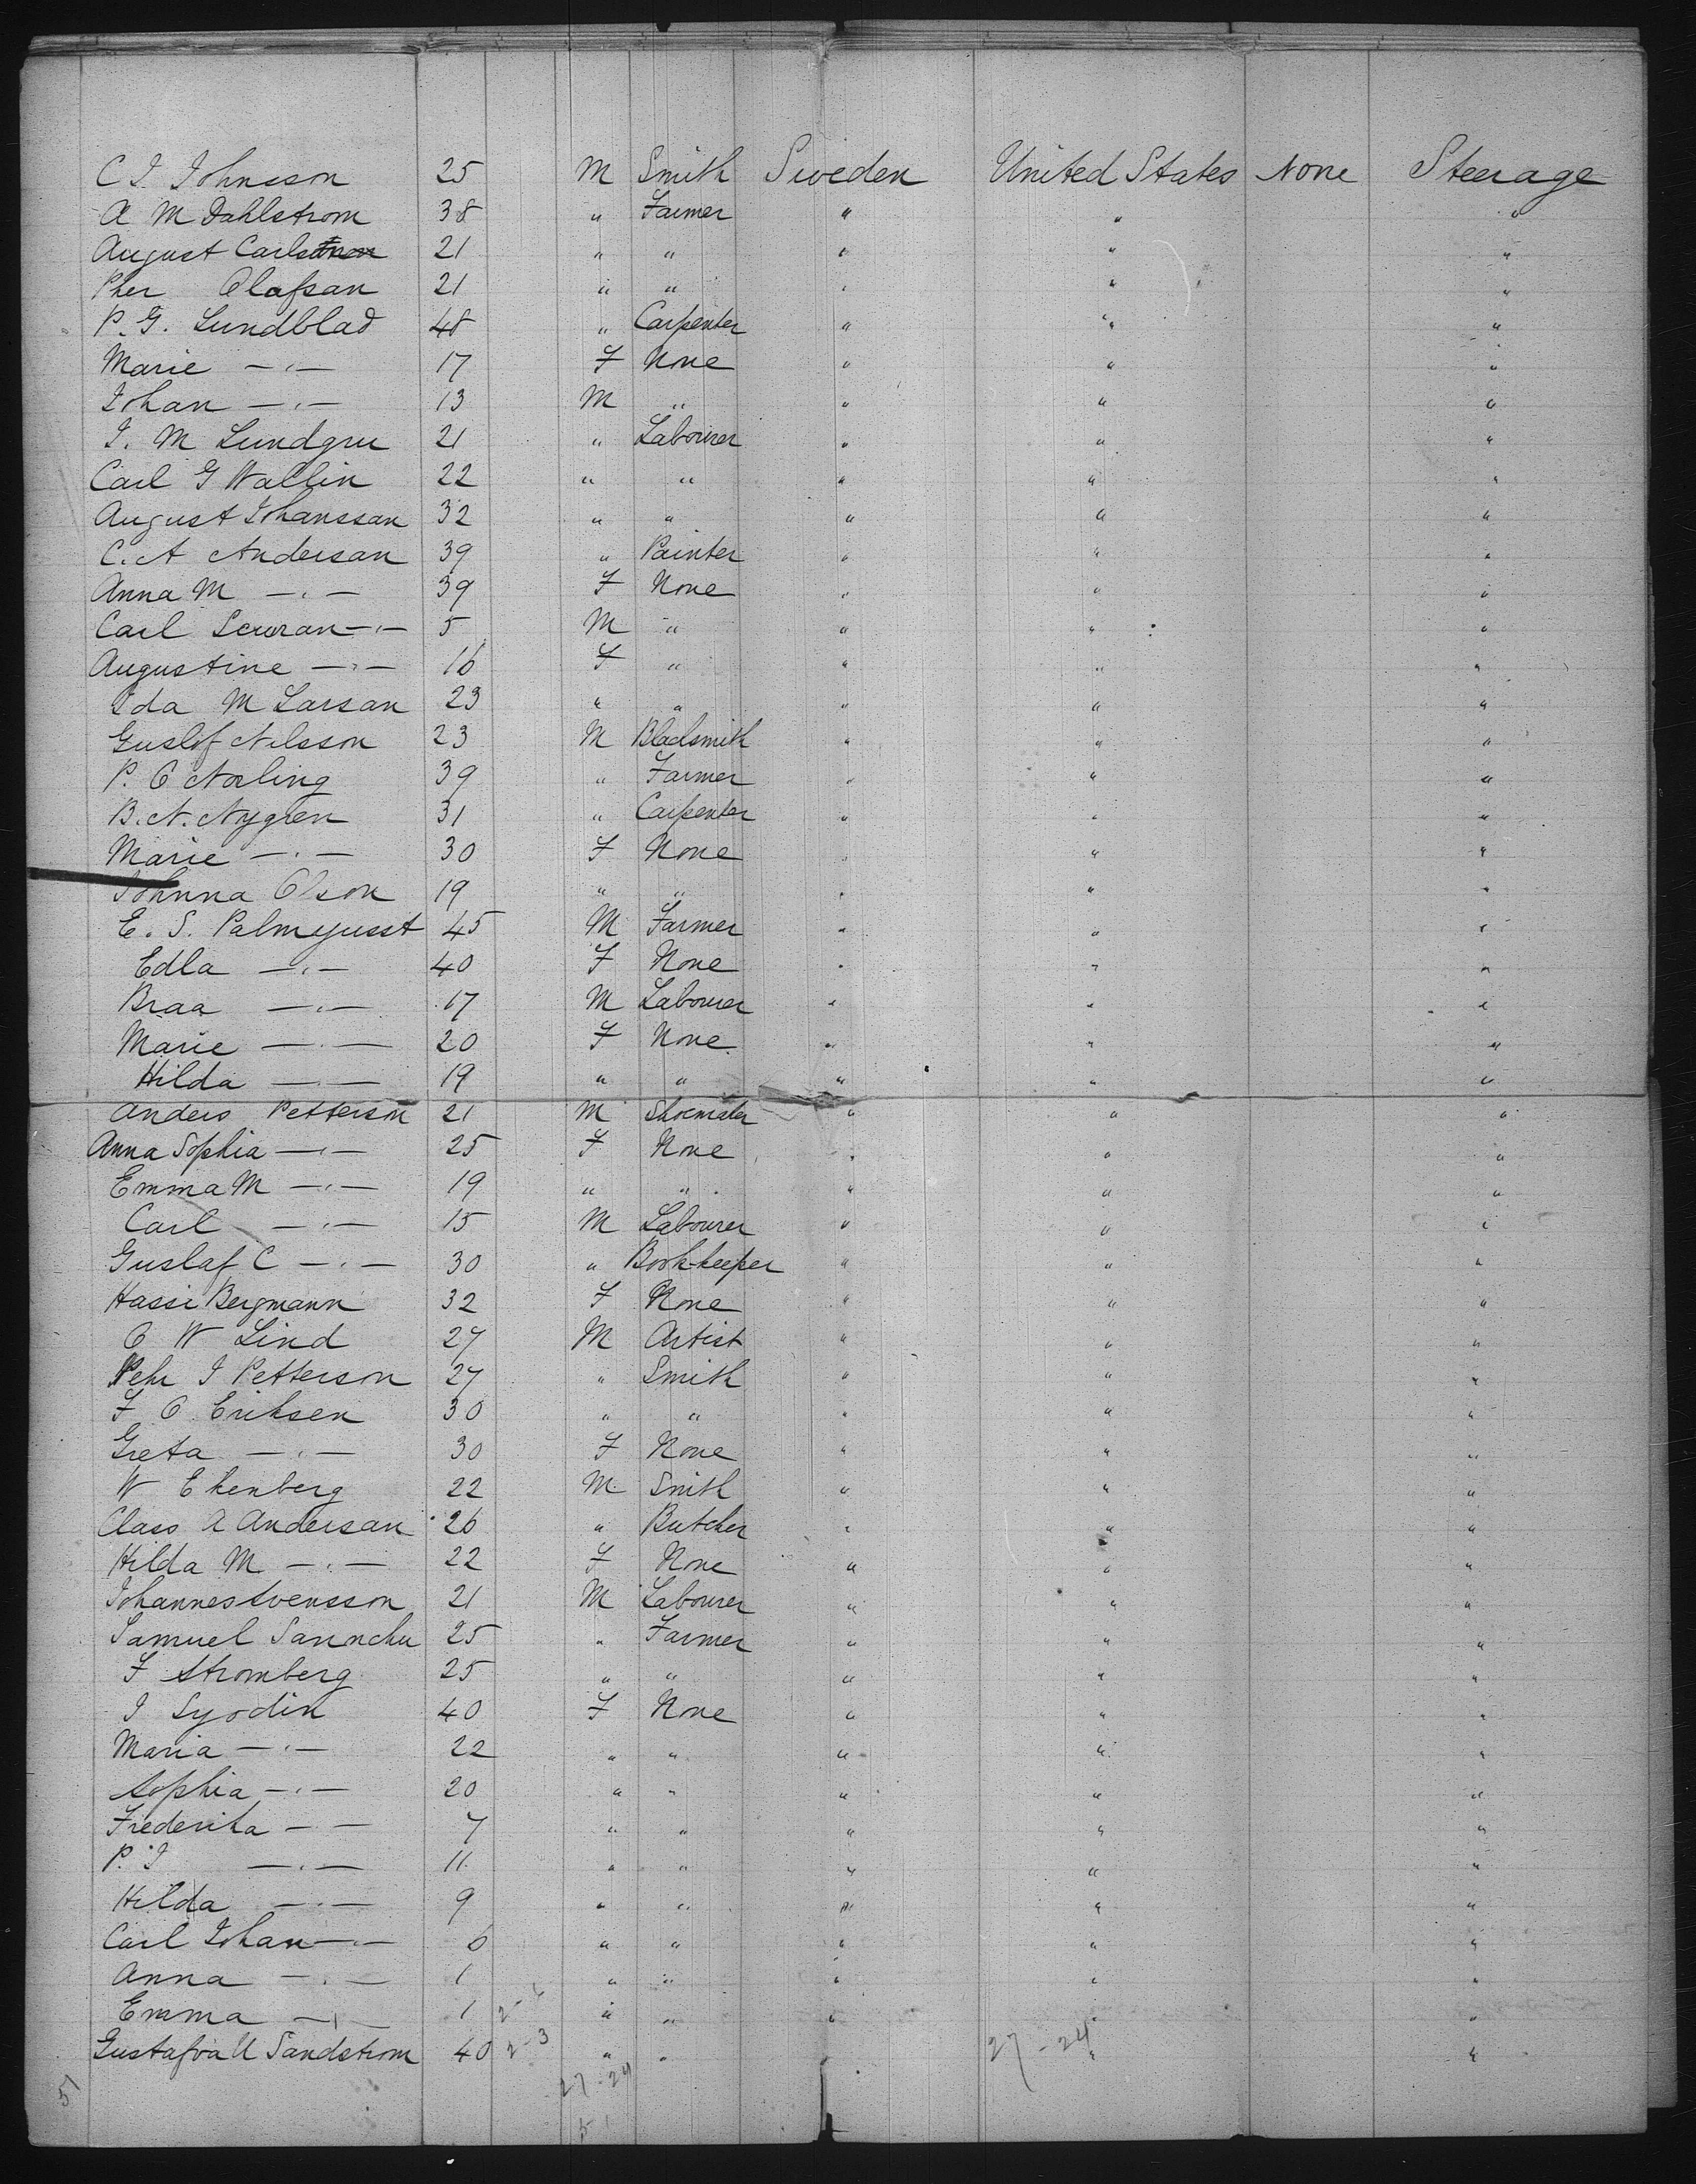 C I Johnsson 25 M Smith Sweden United States None Steerage
A M Dahlstrom 38 " Farmer " " "
August Carlstrom 21 " " " " "
Pher Olafsan 21 " " " " "
P. G. Lundblad 48 " Carpenter " " "
Marie —"— 17 F None " " "
Johan —"— 13 M " " " "
I. M Lundgru 21 " Labourer " " "
Carl G Wallin 22 " " " " "
August Johanssan 32 " " " " "
C. A Andersan 39 " Painter " " "
Anna M —"— 39 F None " " "
Carl —"— 5 M " " " "
Augustine —"— 16 F " " " "
Ida M Larsan 23 " " " " "
Guslof Nilsson 23 M Blacksmith " " "
P. O Norling 39 " Farmer " " "
B. N. Nygren 31 " Carpenter " " "
Marie —"— 30 F None " " "
Johnna Olson 19 " " " " "
E. S. Palmquist 45 M Farmer " " "
Edla —"— 40 F None " " "
Braa —"— 17 M Labourer " " "
Marie —"— 20 F None " " "
Hilda —"— 19 " " " " "
Anders Petterson 21 M Shoemaker " " "
Anna Sophia —"— 25 F None " " "
Emma M —"— 19 " " " " "
Carl —"— 15 M Labourer " " "
Guslaf C —"— 30 " Book-keeper " " "
Hassi Bergmann 32 F None " " "
O W Lind 27 M Artist " " "
Pehr I Petterson 27 " Smith " " "
F O Eriksen 30 " " " " "
Greta —"— 30 F None " " "
W Ekenberg 22 M Smith " " "
Class A Andersan 26 " Butcher " " "
Hilda M —"— 22 F None " " "
Johannes Svensson 21 M Labourer " " "
Samuel 25 " Farmer " " "
F Stromberg 25 " " " " "
I Syodin 40 F None " " "
Maria —"— 22 " " " " "
Sophia —"— 20 " " " " "
Frederika —"— 7 " " " " "
P. I —"— 11 " " " " "
Hilda —"— 9 " " " " "
Carl Johan —"— 6 " " " " "
Anna —"— 1 " " " " "
Emma —"— 1 " " " " "
Gustafva U Sandstrom 40 2-3 " " " 27-24 " "
51 27-24
51